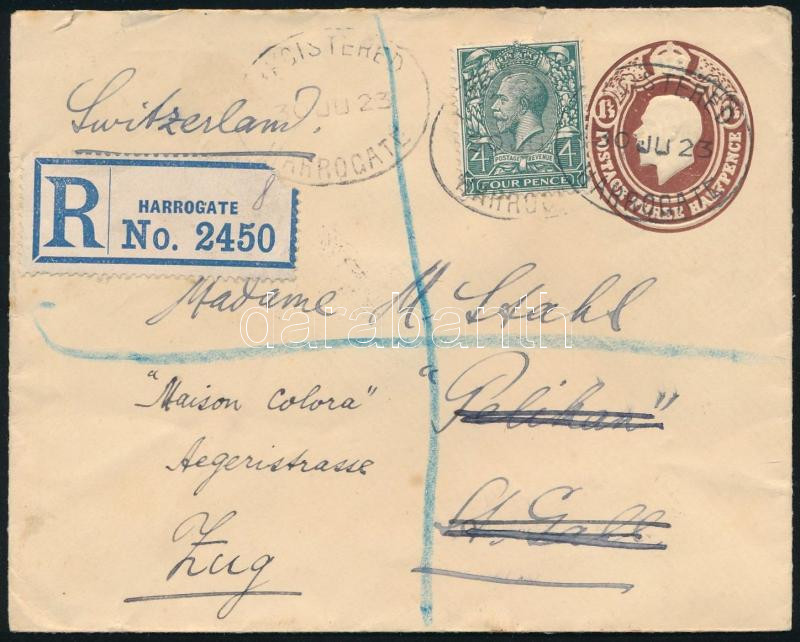 REGISTERED
30 JU 23
HARROGATE
Switzerland.
POSTAGE REVENUE
4 4
FOUR PENCE
REGISTERED
30 JU 23
HARROGATE
1½
POSTAGE THREE HALFPENCE
R
HARROGATE 8
No. 2450
Madame M. Stahl
darabanth
"Maison Colora"
Aegeristrasse
Zug
"Pelikan"
St. Gall